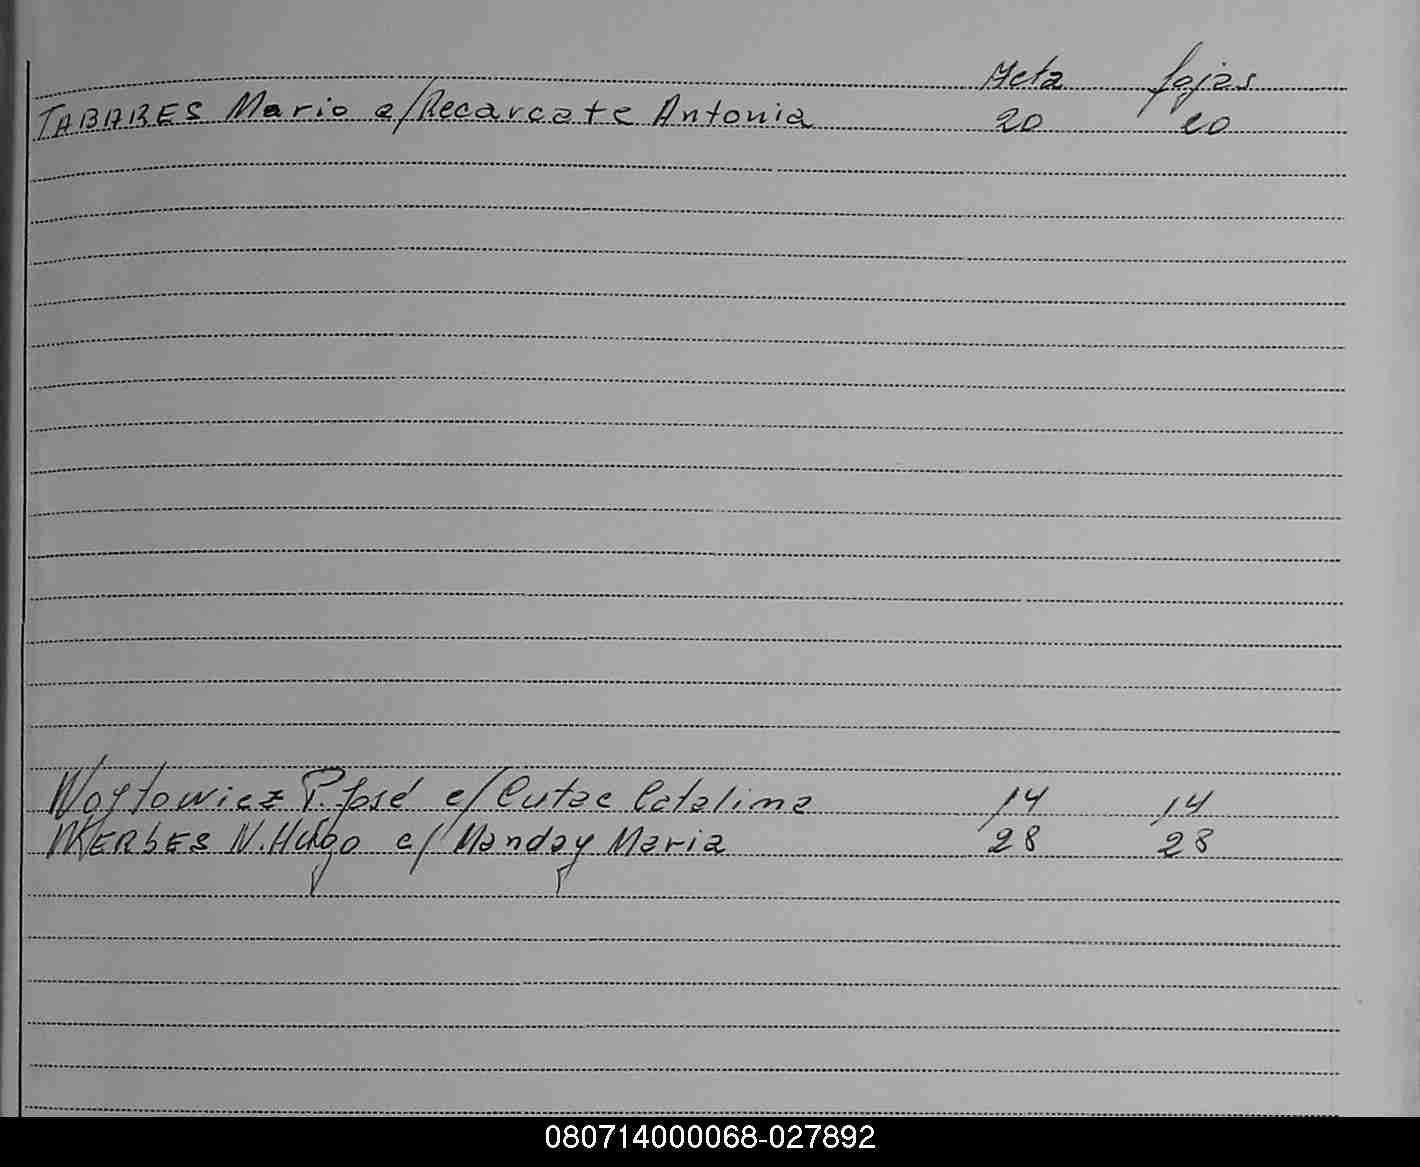 Acta fojas
TABARES Mario c/Recarcate Antonia 20 20
Woytowicz P. José c/ Cutac Catalina 14 14
WERbES N. Hugo c/ Manday Maria 28 28
080714000068-027892